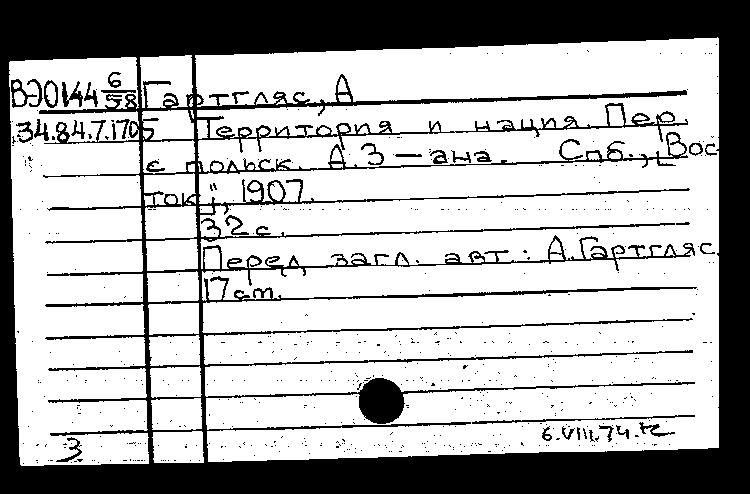 ВЭ0144 6/58 Гартгляс, А
34.84.7.1705 Территория и нация. Пер.
с польск. А.З — ана. Спб., "Вос-
ток", 1907.
32 с.
Перед загл. авт.: А. Гартгляс.
17 cm.
6.VIII.74.
3